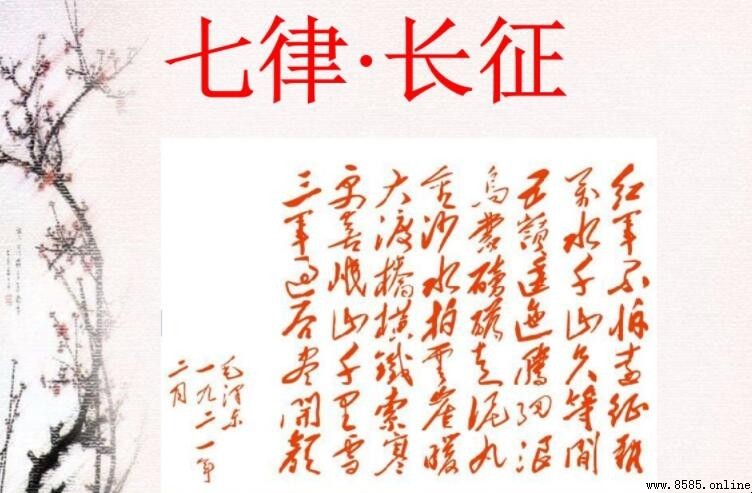 七律·长征
红军不怕遠征難
万水千山只等閒
五嶺逶迤腾细浪
乌蒙磅礴走泥丸
金沙水拍雲崖暖
大渡橋横鐵索寒
更喜岷山千里雪
三军过后尽開颜
毛泽东
二月
www.8585.online